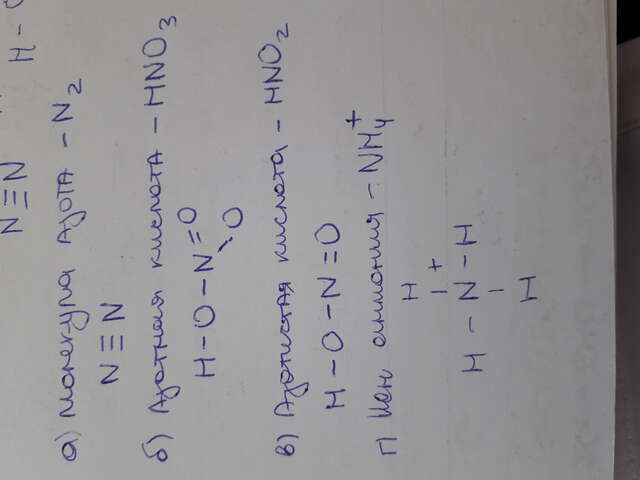 N≡N
H -
а) Молекула Азота - N2
N≡N
б) Азотная кислота - HNO3
H-O-N=O
O
в) Азотистая кислота - HNO2
H-O-N=O
г) Ион аммония - NH4+
H
H-N-H
+
H